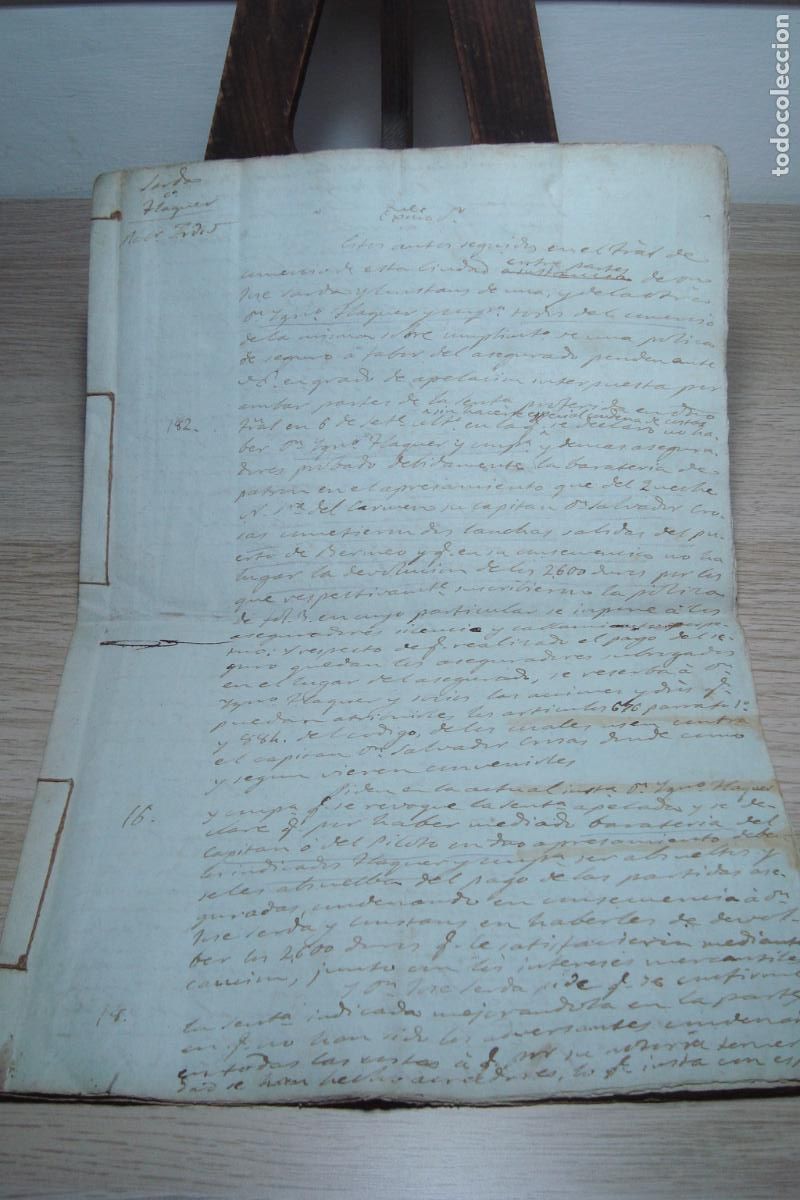 todocoleccion
Serda
Flaquer
Exmo Sr
Estos autos seguidos en el Trâl de
comercio de esta Ciudad entre partes de Dn
Jose Serda y Constans de una; y de la otra
Dn Ygno Flaquer y compa todos del comercio
de la misma sobre cumplimto de una poliza
de seguro á fabor del asegurado pendn ante
V.E. en grado de apelacion interpuesta por
ambas partes de la senta proferida en dicho
sin hacerse especial condena de costas
182.
Trâl en 6 de sete ulto en la q. se declaró no ha-
ber Dn Ygno Flaquer y compa y demas asegura-
dores probado debidamente la barateria de
patron en el apresamiento que del Quechе
N. Sra del Carmen su capitan Dn Salvador Cro-
sas cometieron dos lanchas salidas del pu-
erto de Bermeo y q. en su consecuencia no ha
lugar la devolucion de los 2600 duros por los
que respectivante suscribieron la poliza
de fol. 3. en cuyo particular se impone á los
aseguradores silencio y callam perpe-
tuo; Y respecto de q. realizado el pago del se-
guro quedan los aseguradores subrogados
en el lugar del asegurado, se reserba á Dn
Ygno Flaquer y socios las acciones y dros q.
puedan atribuirles los articulos 646 parrafo 1o
y 884. del codigo, de los cuales usen contra
el capitan Dn Salvador Crosas donde como
y segun vieren convenirles
Piden en la actual insta Dn Ygno Flaquer
16.
y compa q. se revoque la senta apelada y se de-
clare q. por haber mediado barateria del
Capitan ó del Piloto en dho apresamiento deben
los indicados Flaquer y compa ser absueltos y
se les absuelba del pago de las partidas ase-
guradas, condenando en consecuencia á Dn
Jose Serda y Constans en haberles de devol-
ber los 2600 duros q. le satisfacieron mediante
caucion, junto con los intereses mercantiles
y Dn Jose Serda pide q. se confirme
18.
la senta indicada mejorandola en la parte
en q. no han sido los adversantes condenad
en todas las costas á q. por su notoria temer
se han hecho acreedores, lo q. insta con esp